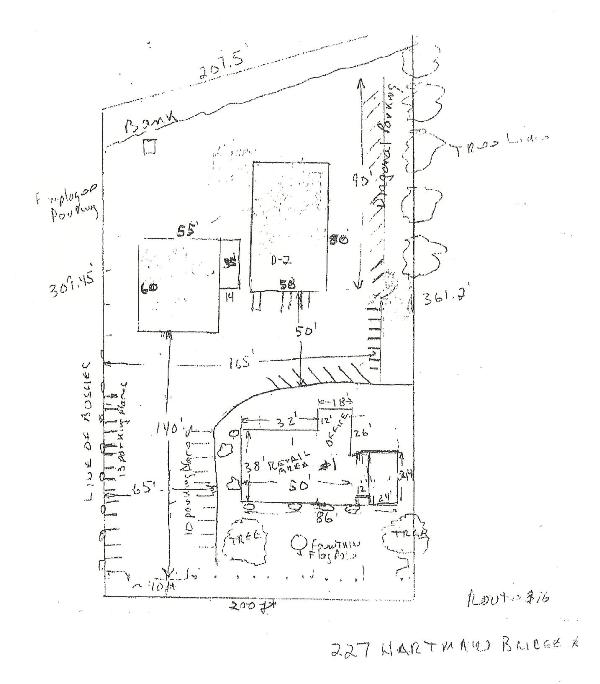 207.5'
Bank
Employee
Parking
Diagonal Parking
90'
Tree Line
55'
60
14
D-2
50'
80'
309.45'
361.2'
50'
165'
LINE OF BUSHES
13 parking places
140'
10 parking places
65'
32'
18'
12'
OFFICE
26'
38'
RETAIL
AREA
#1
50'
24'
86'
TREE
Fountain
Flag Pole
TREE
~40ft
200 ft
227 HARTMAN BRIDGE R